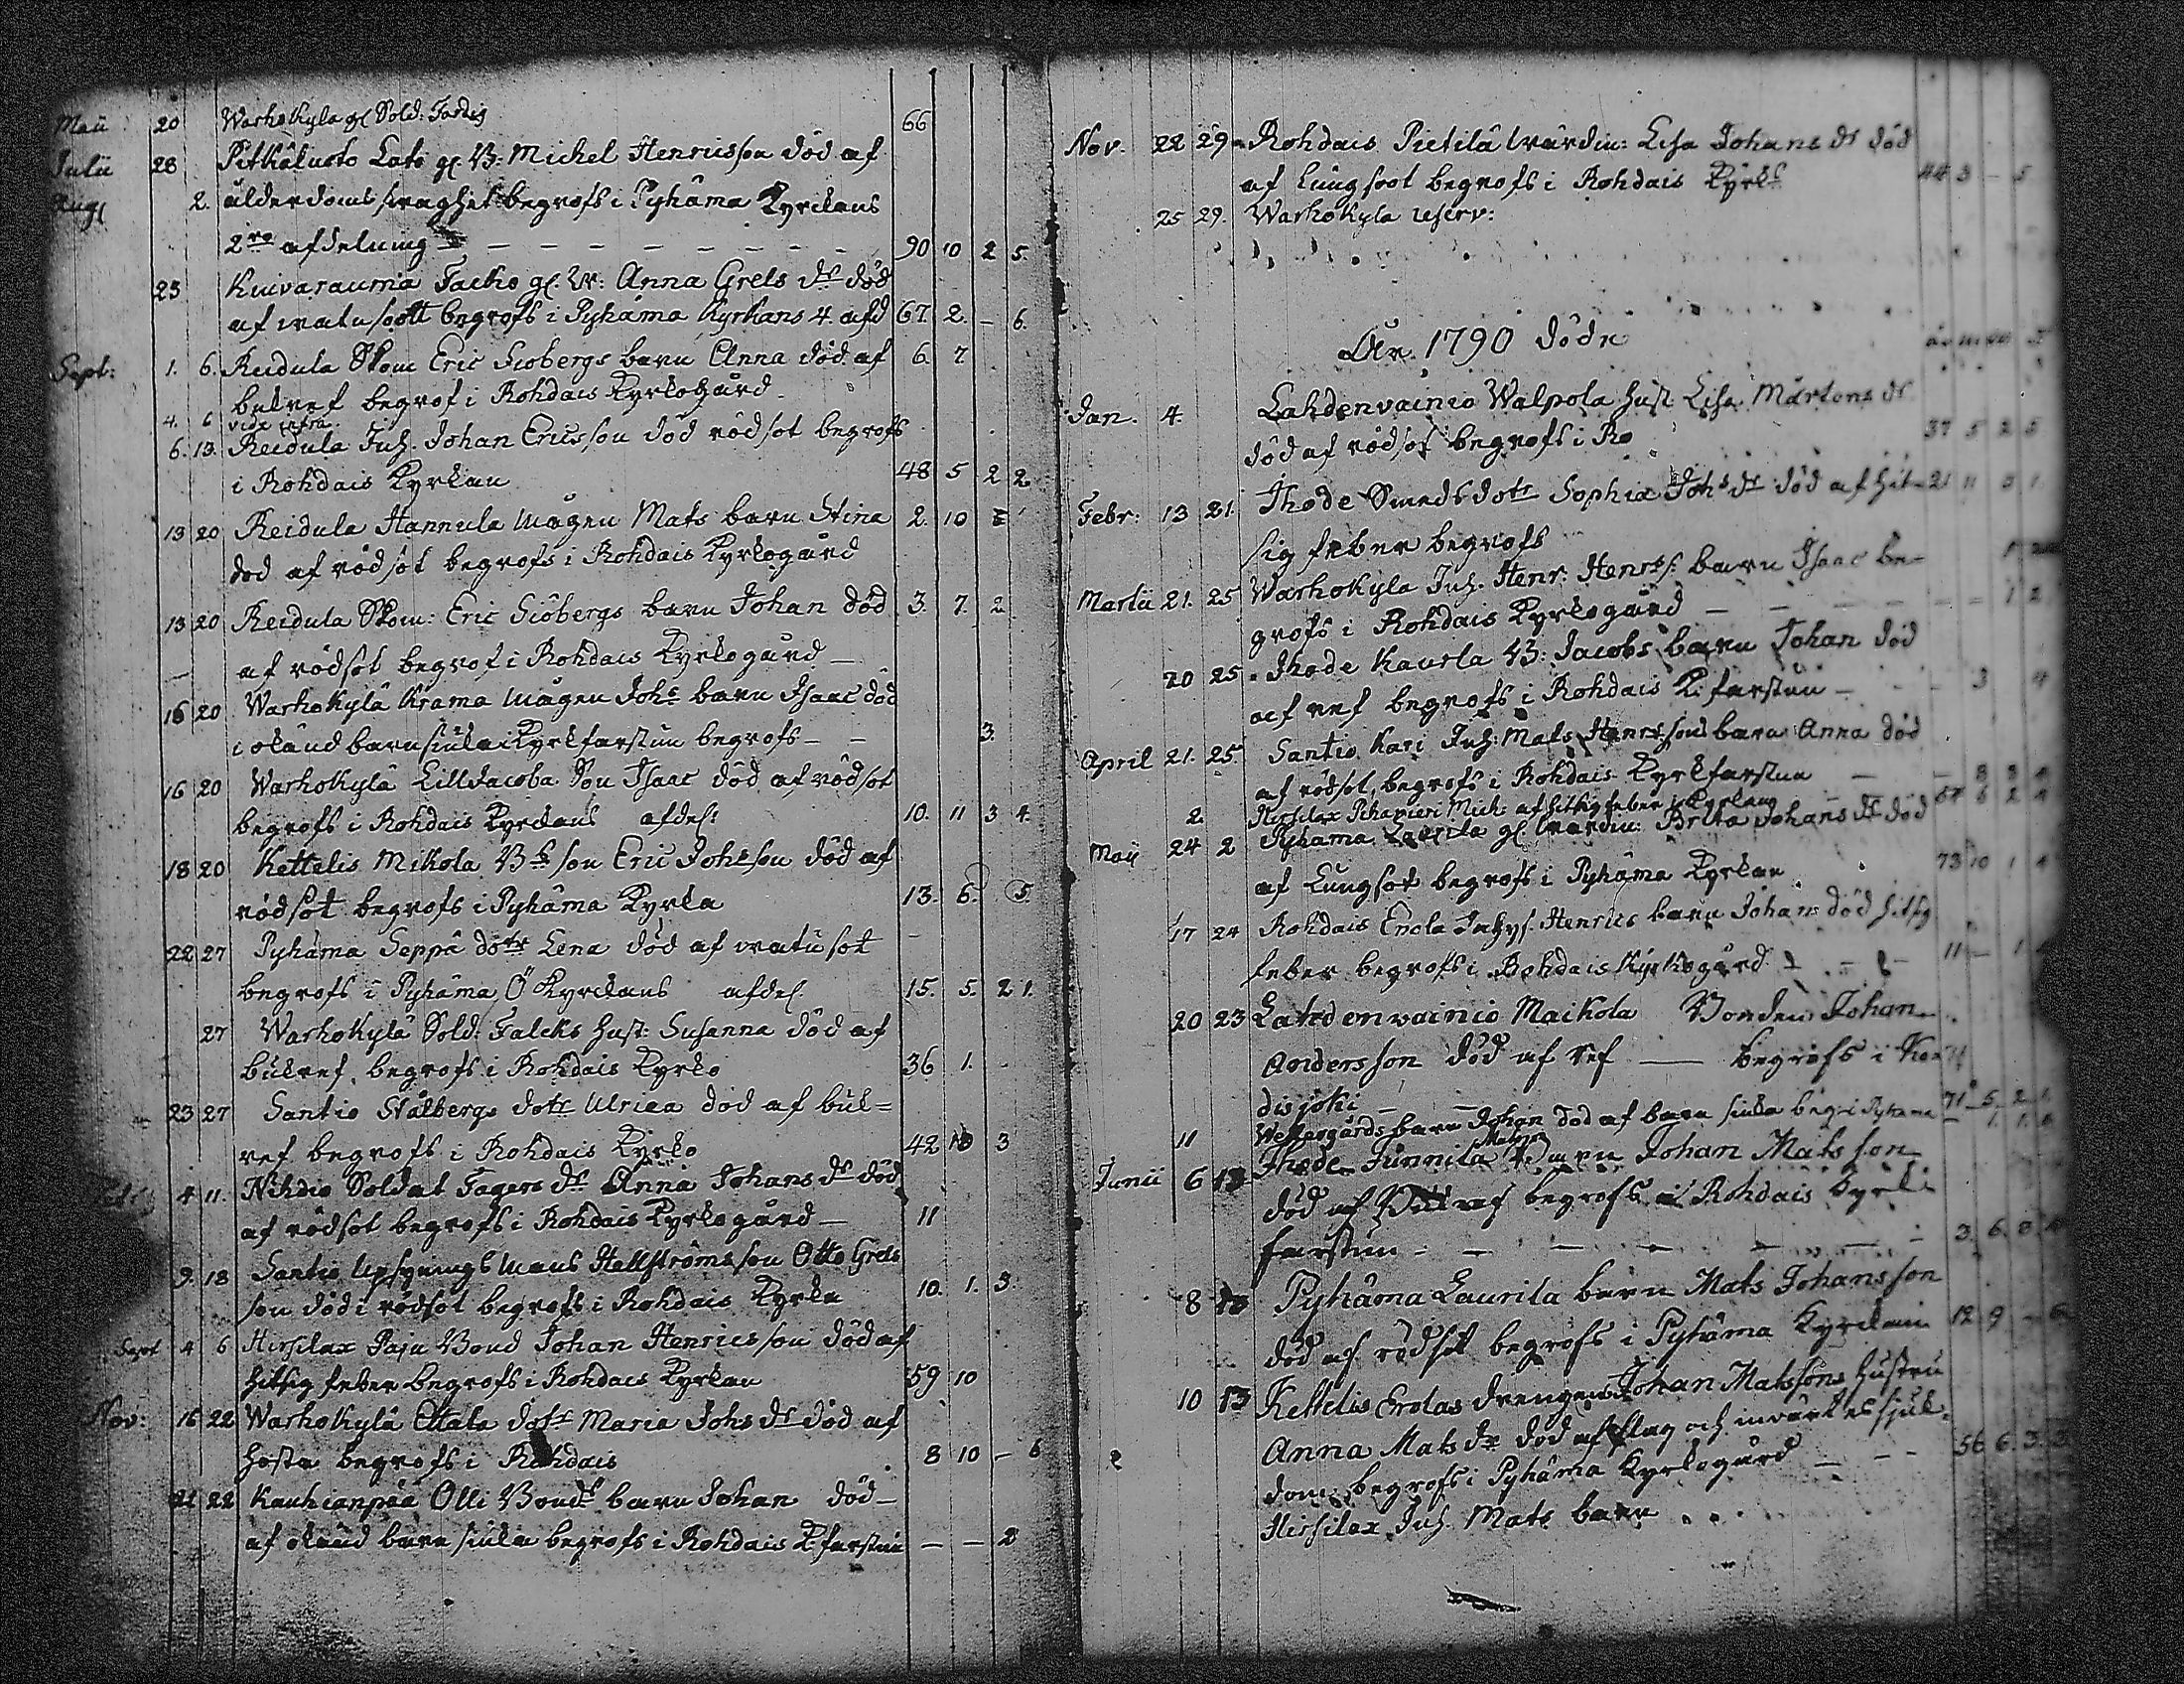 Maii 20 Warhokyla gl Sold: Fardig 66
Julii 28 Pitkäluoto Lato gl. B: Michel Henricsson död af
Aug 2. ålderdoms swaghet begrofs i Pyhäma Kyrckans
2ra afdelning 90 10 2 5.
23 Kuivarauma Jacko gl. W: Anna Grels dr död
af watusoott begrofs i Pyhäma Kyrkans 4. afd 67. 2. – 6.
Sept: 1. 6. Reidula Skom Eric Siobergs barn Anna död af 6 7
bukref begrof i Rohdais Kyrkogård
4. 6 vide infra
6. 13. Reidula Inh. Johan Ericsson död rödsot begrofs
i Rohdais Kyrkan 48 5 2 2
13 20 Reidula Hannula mågen Mats barn Stina 2. 10
död af rödsot begrofs i Rohdais Kyrkogård
13 20 Reidula Skom: Eric Siöbergs barn Johan död 3. 7. 2
af rödsot begrof i Rohdais Kyrkogård –
16 20 Warhokylä Krama mågen Johs barn Isaac död
i okänd barnsiuka i Kyrkfarstun begrofs – – 3.
16 20 Warhokylä Lilldacoba Son Isaac död af rödsot
begrofs i Rohdais Kyrckans afdel: 10. 11 3 4.
18 20 Kettelis Mikola Bds son Eric Johsson död af
rödsot begrofs i Pyhäma Kyrka 13. 6. 5.
22 27 Pyhäma Seppä dotr Lena död af watusot
begrofs i Pyhäma Ö Kyrckans afdel. 15. 5. 2 1.
27 Warhokylä Sold: Falcks hust: Susanna död af
bukref begrofs i Rohdais Kyrko 36 1.
23 27 Santio Stålbergs dotr Ulrica död af buk=
ref begrofs i Rohdais Kyrko 42 10 3
4 11. Nihdio Soldat Fagers dr Anna Johans dr död
af rödsot begrofs i Rohdais Kyrkogård – 11
9. 18 Santio Upsynings mans Hellströms son Otto Grels
son död i rödsot begrofs i Rohdais Kyrka 10. 1. 3.
Sept 4 6 Hirsilax Paju Bond Johan Henricsson död af
hitsig feber begrofs i Rohdais Kyrkan 59 10
Nov: 16 22 Warhokylä Ottala dotr Maria Johs dr död af
hosta begrofs i Rohdais 8 10 – 6
21 22 Kauhianpää Olli Bonds barn Johan död –
af okänd barn siuka begrofs i Rohdais K: farstun – – 2
Nov. 22 29 Rohdais Pietilä wärdin: Lisa Johans dr död
af Lungsoot begrofs i Rohdais Kyrko 44 3 – 5
25 29. Warhokyla reserv:
År 1790 döde
Jan. 4. Lahdenvainio Walpola hust Lisa Mårtens dr
död af rödsot begrofs i Ro 37 5 2 5
Febr: 13 21. Ihode Smeds dotr Sophia Johs dr död af hit- 21 11 3 1
sig feber begrofs
Martii 21. 25 Warhokyla Inh. Henr: Henrss: barn Isaac be-
grofs i Rohdais Kyrkogård – – – – – – 1 2
20 25. Ihode Kaurla B: Jacobs barn Johan död
af ref begrofs i Rohdais K: farstun – – 3 4
April 21. 25. Santio Kari Inh: Mats Henrssons barn Anna död
af rödsot begrofs i Rohdais Kyrkfarstun – – 8 3 4
2. Hirsilax Mich: af hitsig feber i Kyrkan 6 2 4
Maij 24 2 Pyhama Laurila gl. wärdin: Brita Johans dr död
af Lungsot begrofs i Pyhäma Kyrkan 73 10 1 4
17 24 Rohdais Erola Inhys. Henrics barn Johan död hitsig
feber begrofs i Rohdais Kyrkogård 11 – 1
20 23 Lahdenvainio Maikola Bonden Johan
Andersson död af ref — begrofs i Kor
disjoki – – 71 5 2 1
11 Westergårds barn Johan död af barn siuka begr i Pyhama – 1. 1.
Junii 6 13 Ihode Junnila Johan Matsson
död af begrofs i Rohdais Kyrko
farstun – – – – – – – 3. 6. 0.
8 13 Pyhäma Laurila barn Mats Johansson
död af rödsot begrofs i Pyhäma Kyrckan 12 9 – 6
10 13 Kettelis Erolas drengens Johan Matssons hustru
Anna Mats dr död af slag och invärtes sjuk-
dom begrofs i Pyhäma Kyrkogård – – – 56 6. 3.
Hirsilax Inh. Mats barn